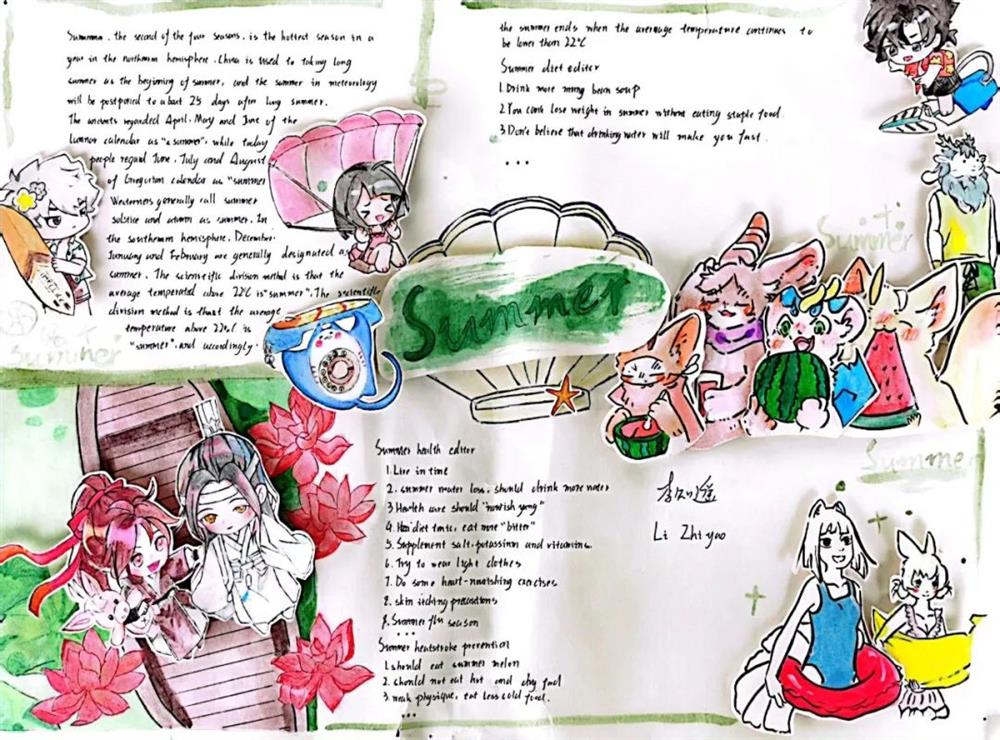 Summma. the second of the four seasons. is the hottest season in a
year in the northmm hemisphere. China is used to taking long
summer as the beginning of summer, and the summer in meteorology
will be postponed to about 25 days after long summer.
The ancients regarded April. May and June of the
lunnar calendar as "summer". while today
people regard June. July and August
of Gregorian calendar as "summer
Westerners generally call summer
solstice and autumn as summer. In
the southern hemisphere. December.
January and February are generally designated as
summer. The scienteific division method is that the
average temperated above 22°C is "summer". The scientific
division method is that the average
temperature above 22°C is
"summer". and accordingly.
summer
the summer ends when the average temperature continues to
be loner than 22°C
Summer diet editor
1. Drink more mung bean soup
2. You can't lose weight in summer without eating staple food.
3. Don't believe that drinking water will make you fast.
...
Summer
Summer
Summer
Summer health editor
1. Live in time
2. summer water loss. should drink more water
3 Health care should "nourish yang"
4. diet tonic, eat more "bitter"
5. Supplement salt. potassium and vitamins.
6. Try to wear light clothes
7. Do some heart-nourishing exercises
8. skin itching precautions
8. Summer flu season
...
Summer heatstroke prevention
1. should eat summer melon
2. should not eat hot and dry food
3. weak physique, eat less cold food.
...
李知遥
Li Zhiyao